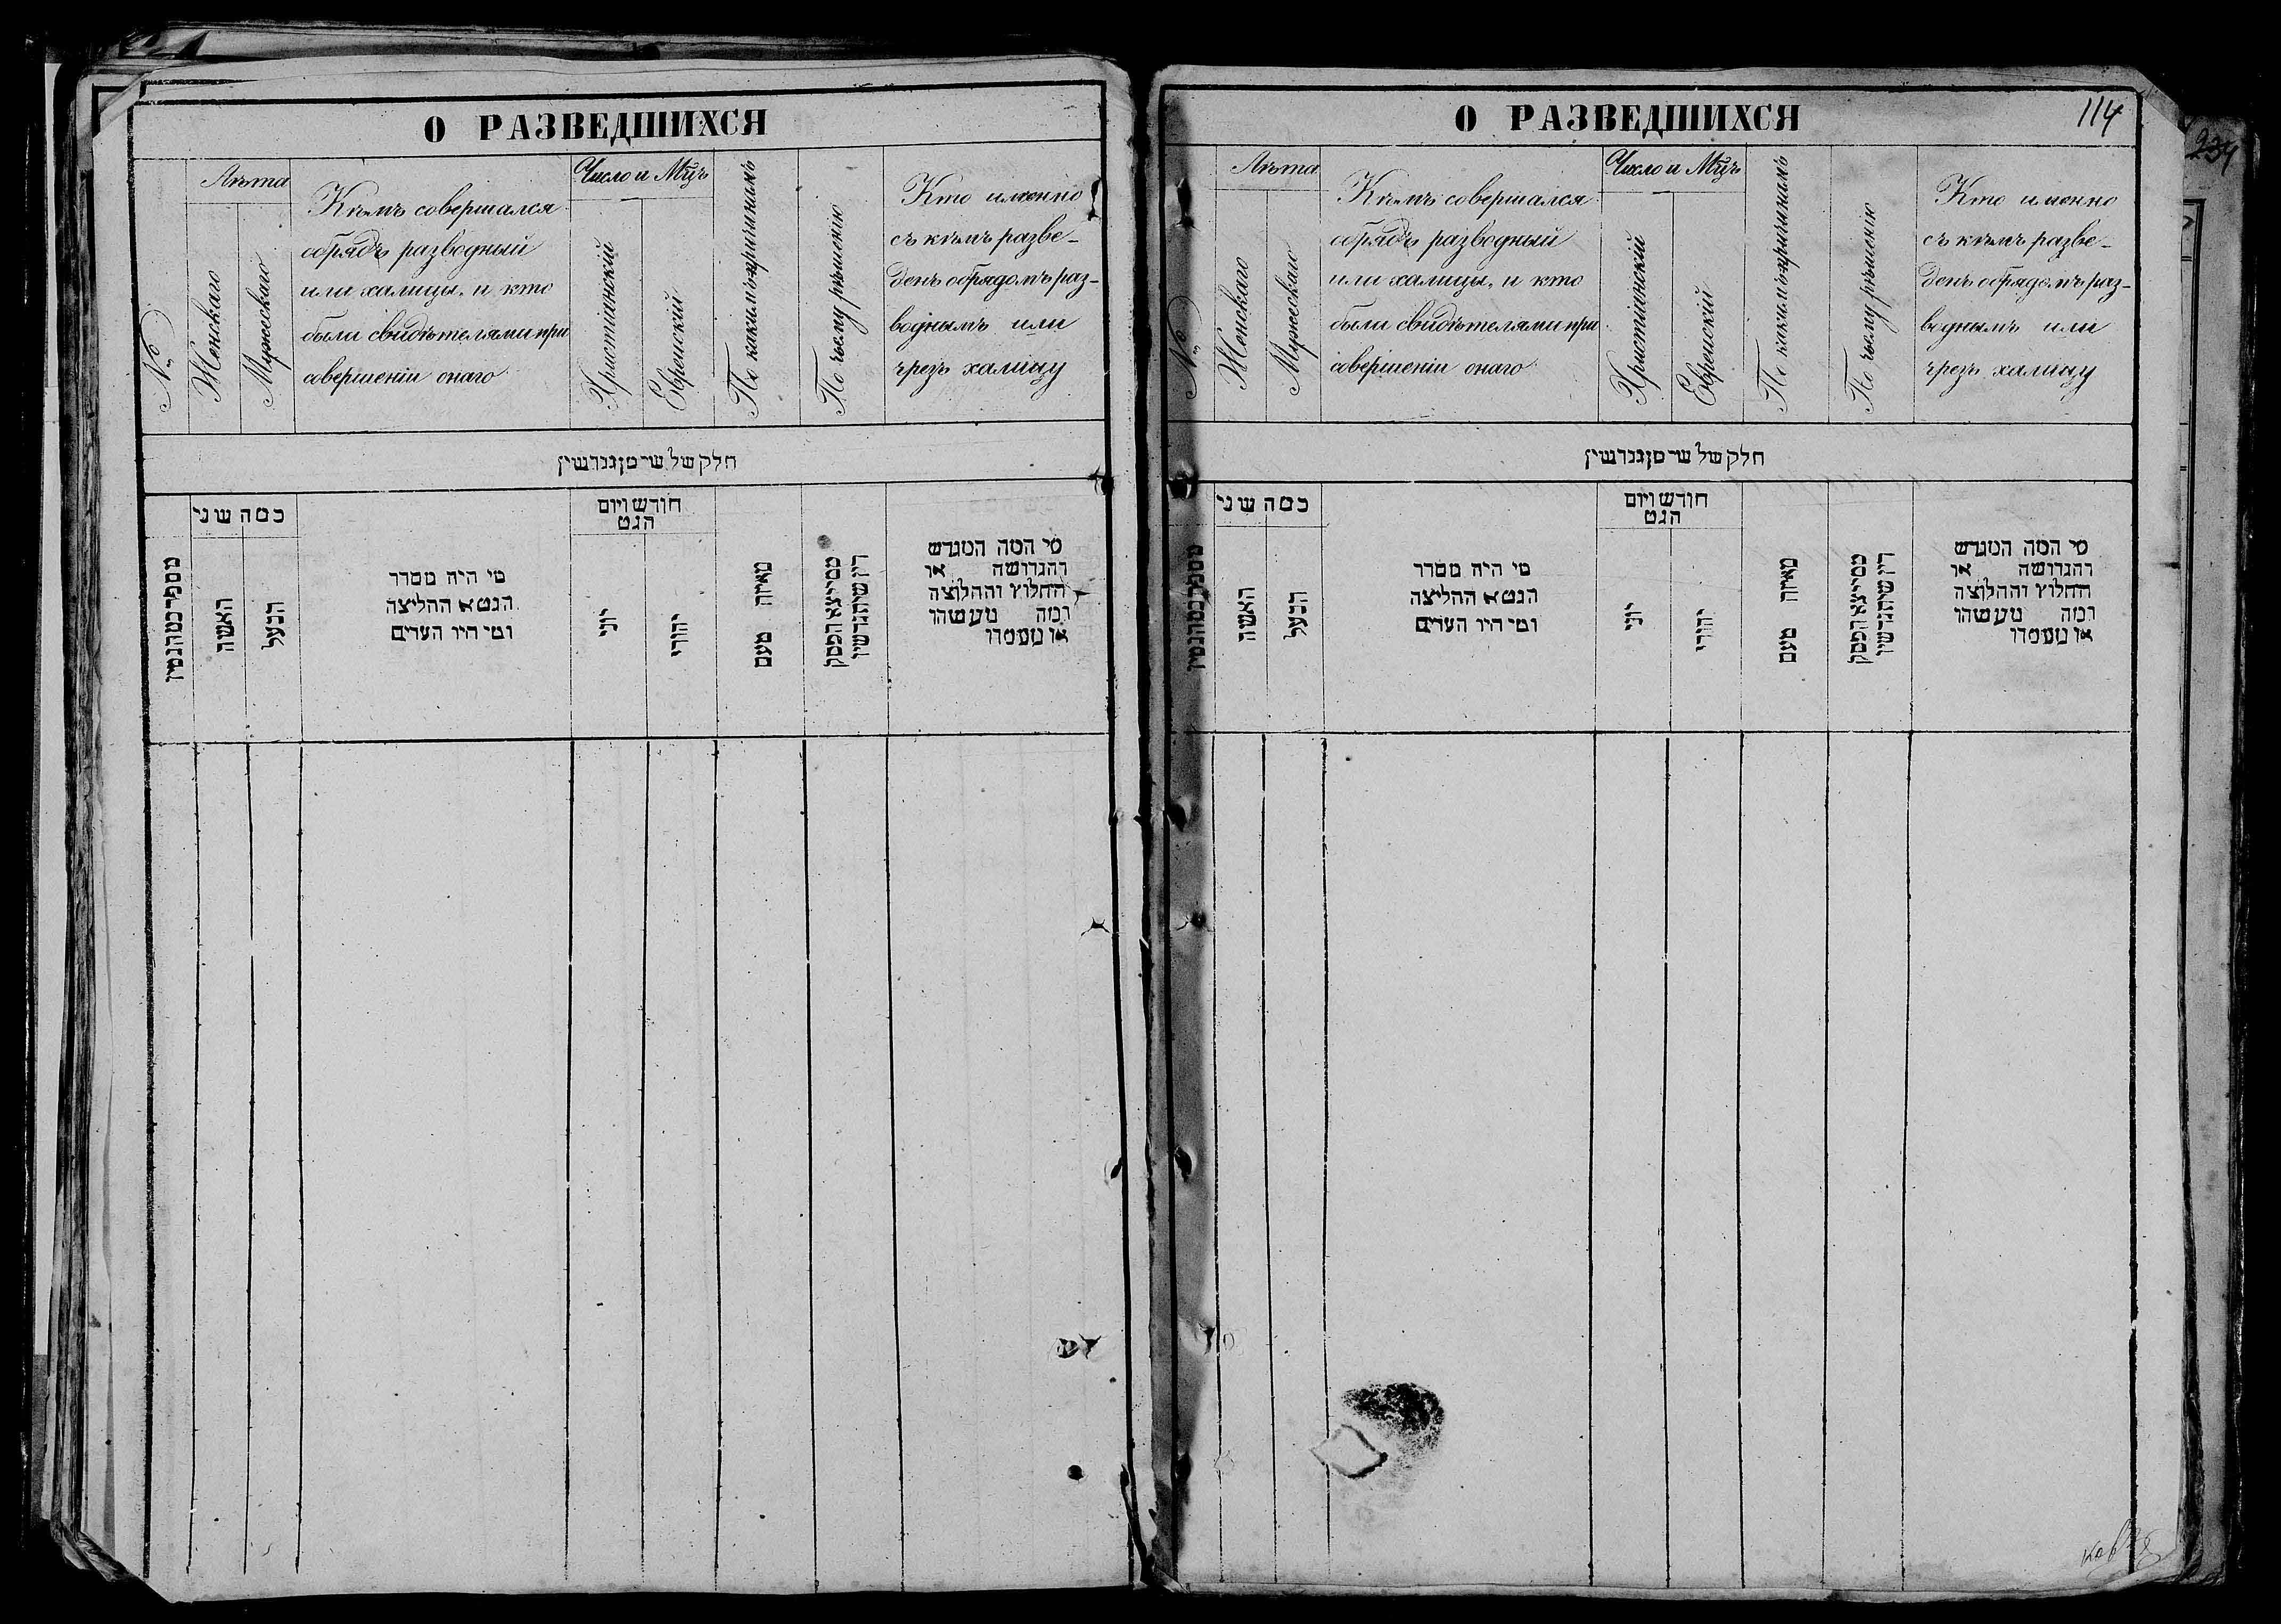 О РАЗВЕДШИХСЯ
№
Лѣта
Женскаго
Мужескаго
Кѣмъ совершался
обрядъ разводный
или халицы, и кто
были свидѣтелями при
совершеніи онаго
Число и Мцъ
Христіянскій
Еврейскій
По какимъ причинамъ
По чьему рѣшенію
Кто именно
съ кѣмъ разве-
денъ обрядомъ раз-
воднымъ или
чрезъ халицу
חלק של שי מן גנרשין
כמה שני
האשה
הבעל
מי היה מסדר
הגט א ההליצה
ומי היו העדים
חודש ויום
הגט
יוני
יהודי
מאיזה טעם
ממי יצא הפסק
דין שיתגרשו
מי המה המגרש
והגרושה או
החלוץ והחלוצה
ומה מעשהו
או מעמדו
О РАЗВЕДШИХСЯ
114
234
№
Лѣта
Женскаго
Мужескаго
Кѣмъ совершался
обрядъ разводный
или халицы, и кто
были свидѣтелями при
совершеніи онаго
Число и Мцъ
Христіянскій
Еврейскій
По какимъ причинамъ
По чьему рѣшенію
Кто именно
съ кѣмъ разве-
денъ обрядомъ раз-
воднымъ или
чрезъ халицу
חלק של שי מן גנרשין
כמה שני
האשה
הבעל
מי היה מסדר
הגט א ההליצה
ומי היו העדים
חודש ויום
הגט
יוני
יהודי
מאיזה טעם
ממי יצא הפסק
דין שיתגרשו
מי המה המגרש
והגרושה או
החלוץ והחלוצה
ומה מעשהו
או מעמדו